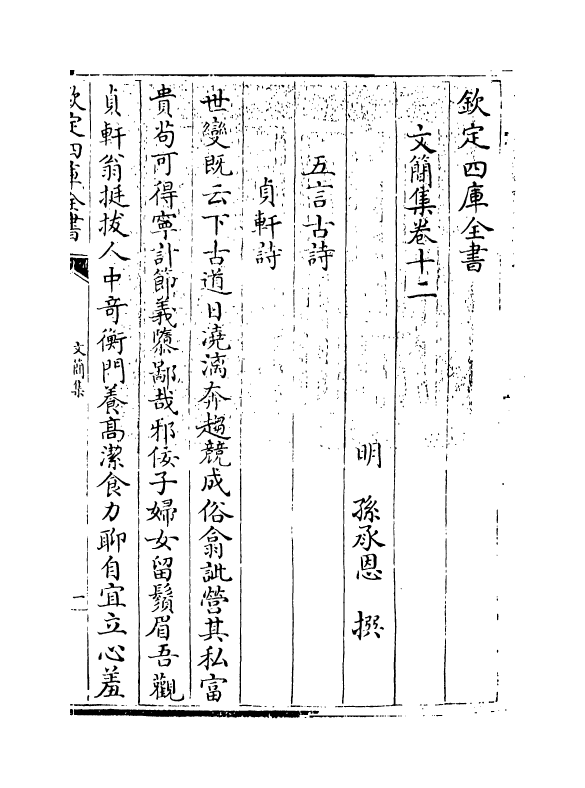 欽定四庫全書
文簡集卷十二
明 孫承恩 撰
五言古詩
貞軒詩
世變既云下古道日澆漓奔趨競成俗翕訿營其私富
貴茍可得寧計節義隳鄙哉邪佞子婦女留鬚眉吾觀
貞軒翁挺拔人中竒衡門養髙潔食力聊自宜立心羞
欽定四庫全書
文簡集
一